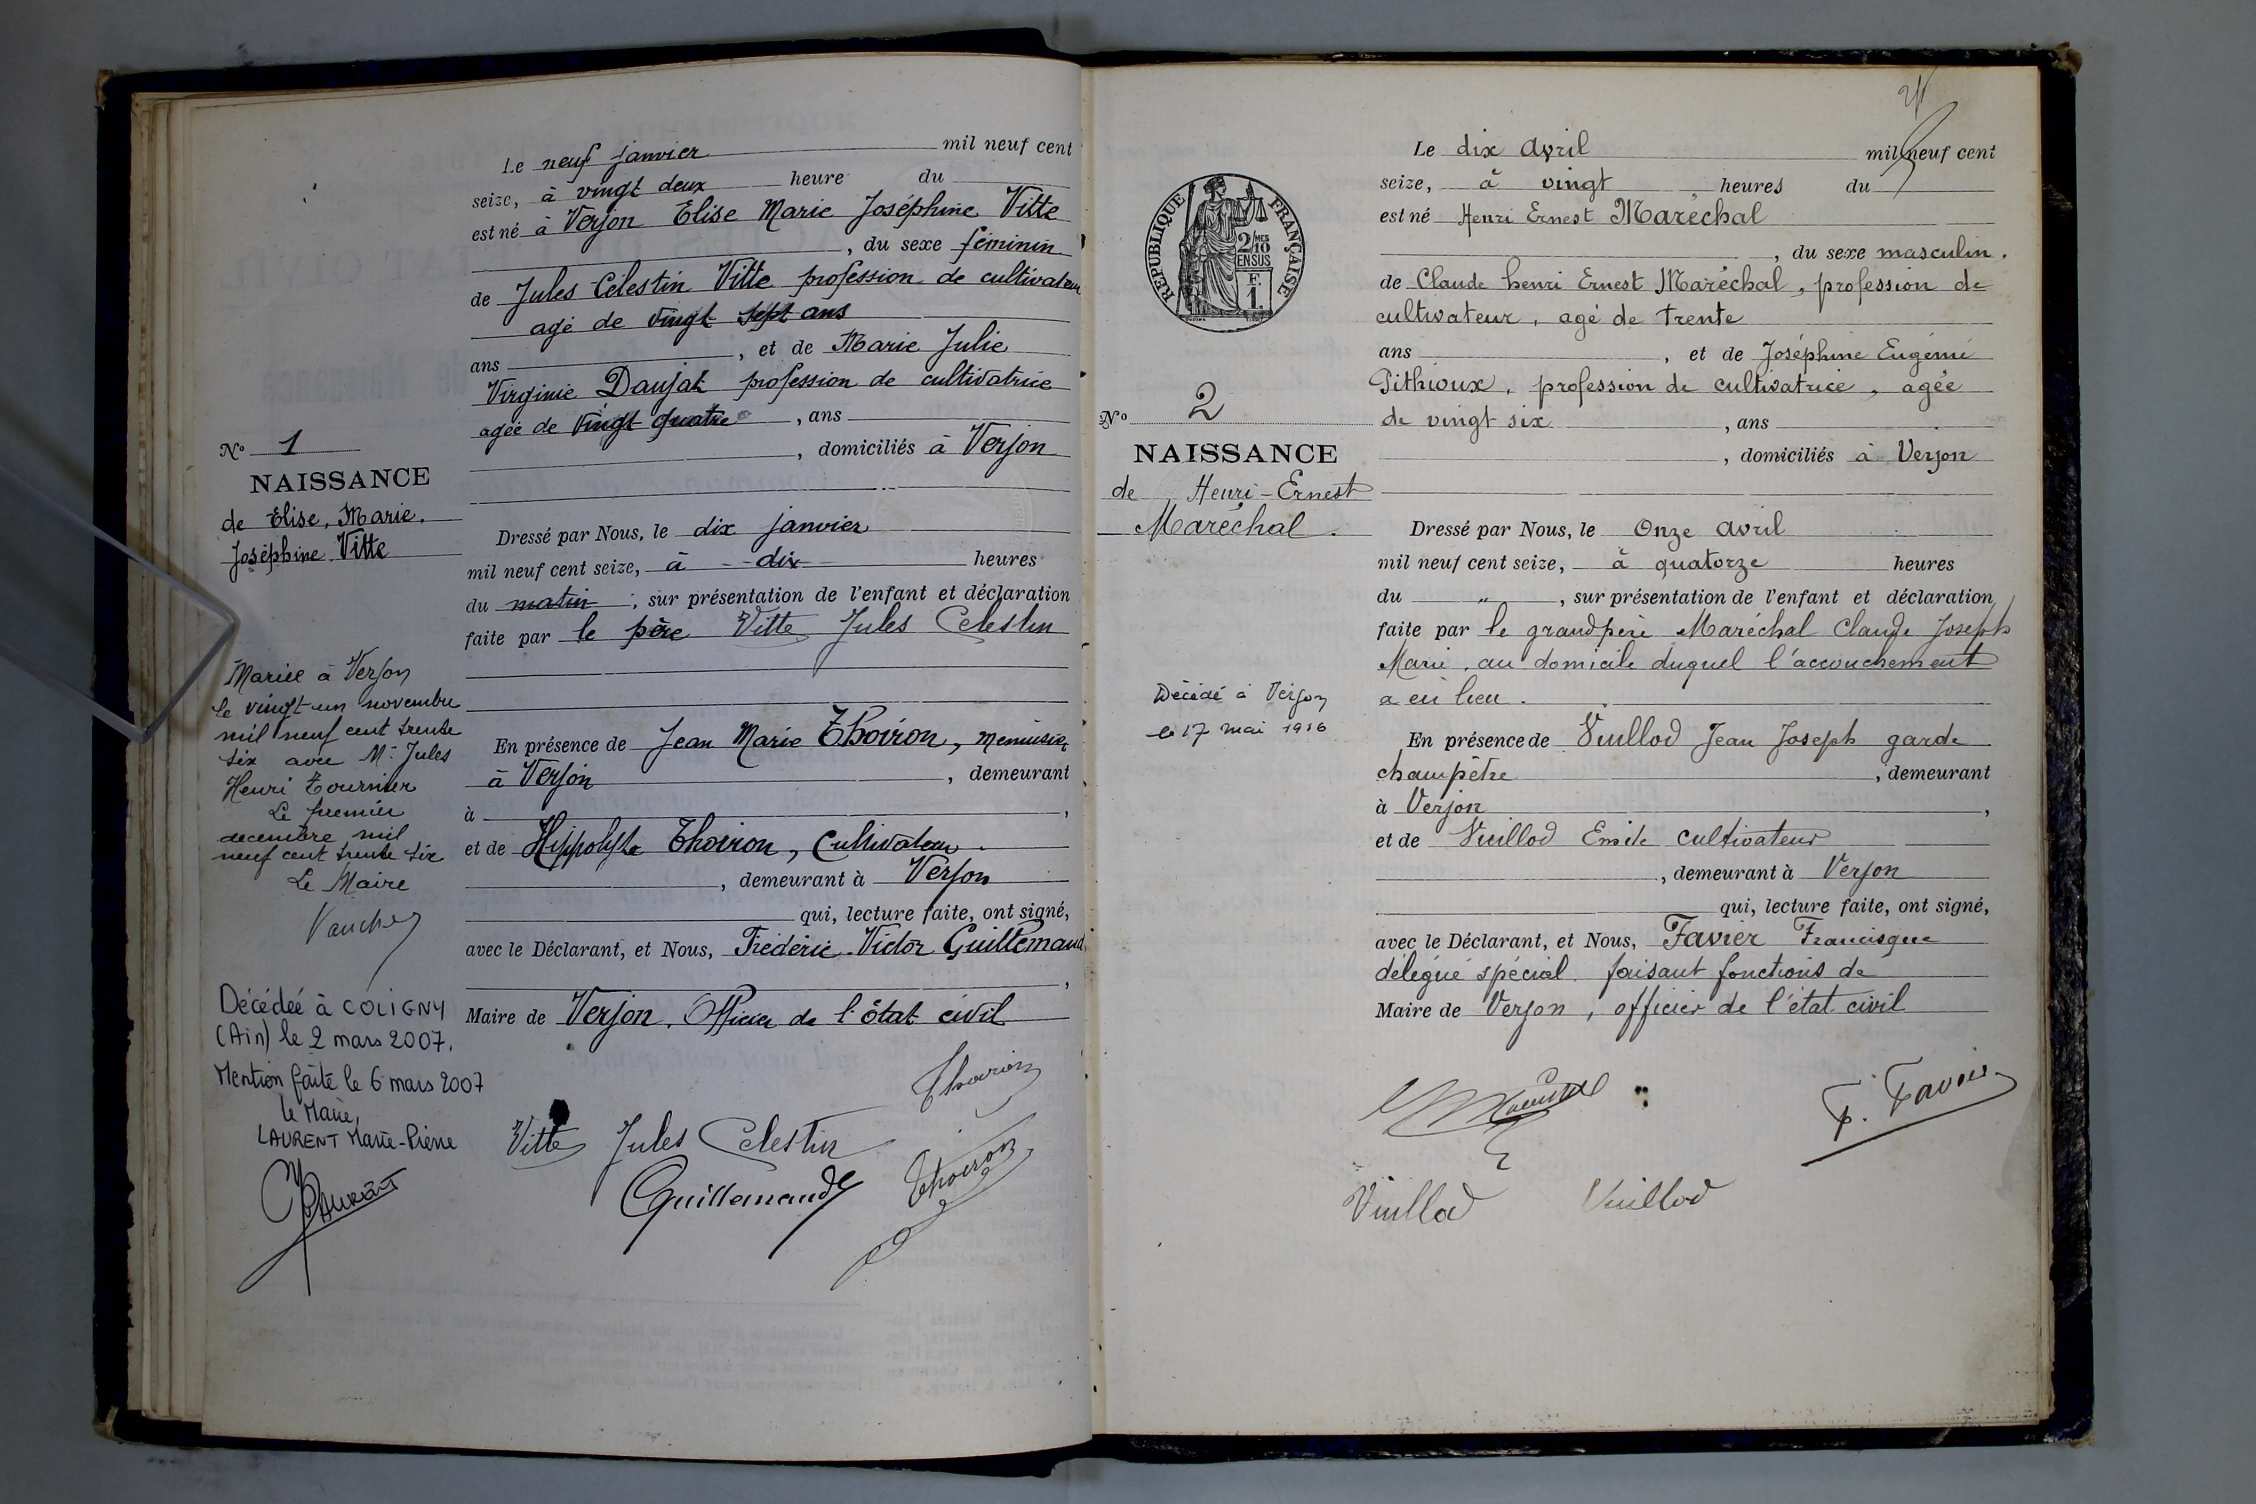 Le neuf janvier mil neuf cent
seize, à vingt deux heure du
est né à Verjon Elise Marie Joséphine Vitte
, du sexe féminin
de Jules Célestin Vitte profession de cultivateur
agé de vingt sept ans
ans , et de Marie Julie
Virginie Daujat profession de cultivatrice
agée de vingt quatre , ans
, domiciliés à Verjon
No 1
NAISSANCE
de Elise, Marie,
Joséphine Vitte
Dressé par Nous, le dix janvier
mil neuf cent seize, à dix heures
du matin , sur présentation de l'enfant et déclaration
faite par le père Vitte Jules Celestin
En présence de Jean Marie Thoiron, menuisier
à Verjon , demeurant
à ,
et de Hippolyte Thoiron, Cultivateur
, demeurant à Verjon
qui, lecture faite, ont signé,
avec le Déclarant, et Nous, Fréderic Victor Guillemaud
,
Maire de Verjon, Officier de l'état civil
Mariée à Verjon
le vingt un novembre
mil neuf cent trente
six avec Mr Jules
Henri Tournier
Le premier
decembre mil
neuf cent trente six
Le Maire
Décédée à COLIGNY
(Ain) le 2 mars 2007.
Mention faite le 6 mars 2007
le Maire,
LAURENT Marie-Pierre
LAURENT
Thoiron
Vitte Jules Celestin
Guillemaud
Thoiron
Le dix Avril mil neuf cent
seize, à vingt heures du
est né Henri Ernest Maréchal
, du sexe masculin.
de Claude henri Ernest Maréchal, profession de
cultivateur, agé de trente
ans , et de Joséphine Eugénie
Pithioux, profession de cultivatrice, agée
de vingt six , ans
, domiciliés à Verjon
RÉPUBLIQUE FRANÇAISE
2/10MES
EN SUS
F.
1.
No 2
NAISSANCE
de Henri-Ernest
Maréchal.
Dressé par Nous, le Onze Avril
mil neuf cent seize, à quatorze heures
du " , sur présentation de l'enfant et déclaration
faite par le grandpère Maréchal Claude Joseph
Marie, au domicile duquel l'accouchement
a eu lieu.
Décédé à Verjon
le 17 mai 1916
En présence de Vuillod Jean Joseph garde
champêtre , demeurant
à Verjon ,
et de Vuillod Emile cultivateur
, demeurant à Verjon
qui, lecture faite, ont signé,
avec le Déclarant, et Nous, Favier Francisque
délégué spécial faisant fonctions de
Maire de Verjon, officier de l'état civil
F. Favier
Vuillod Vuillod